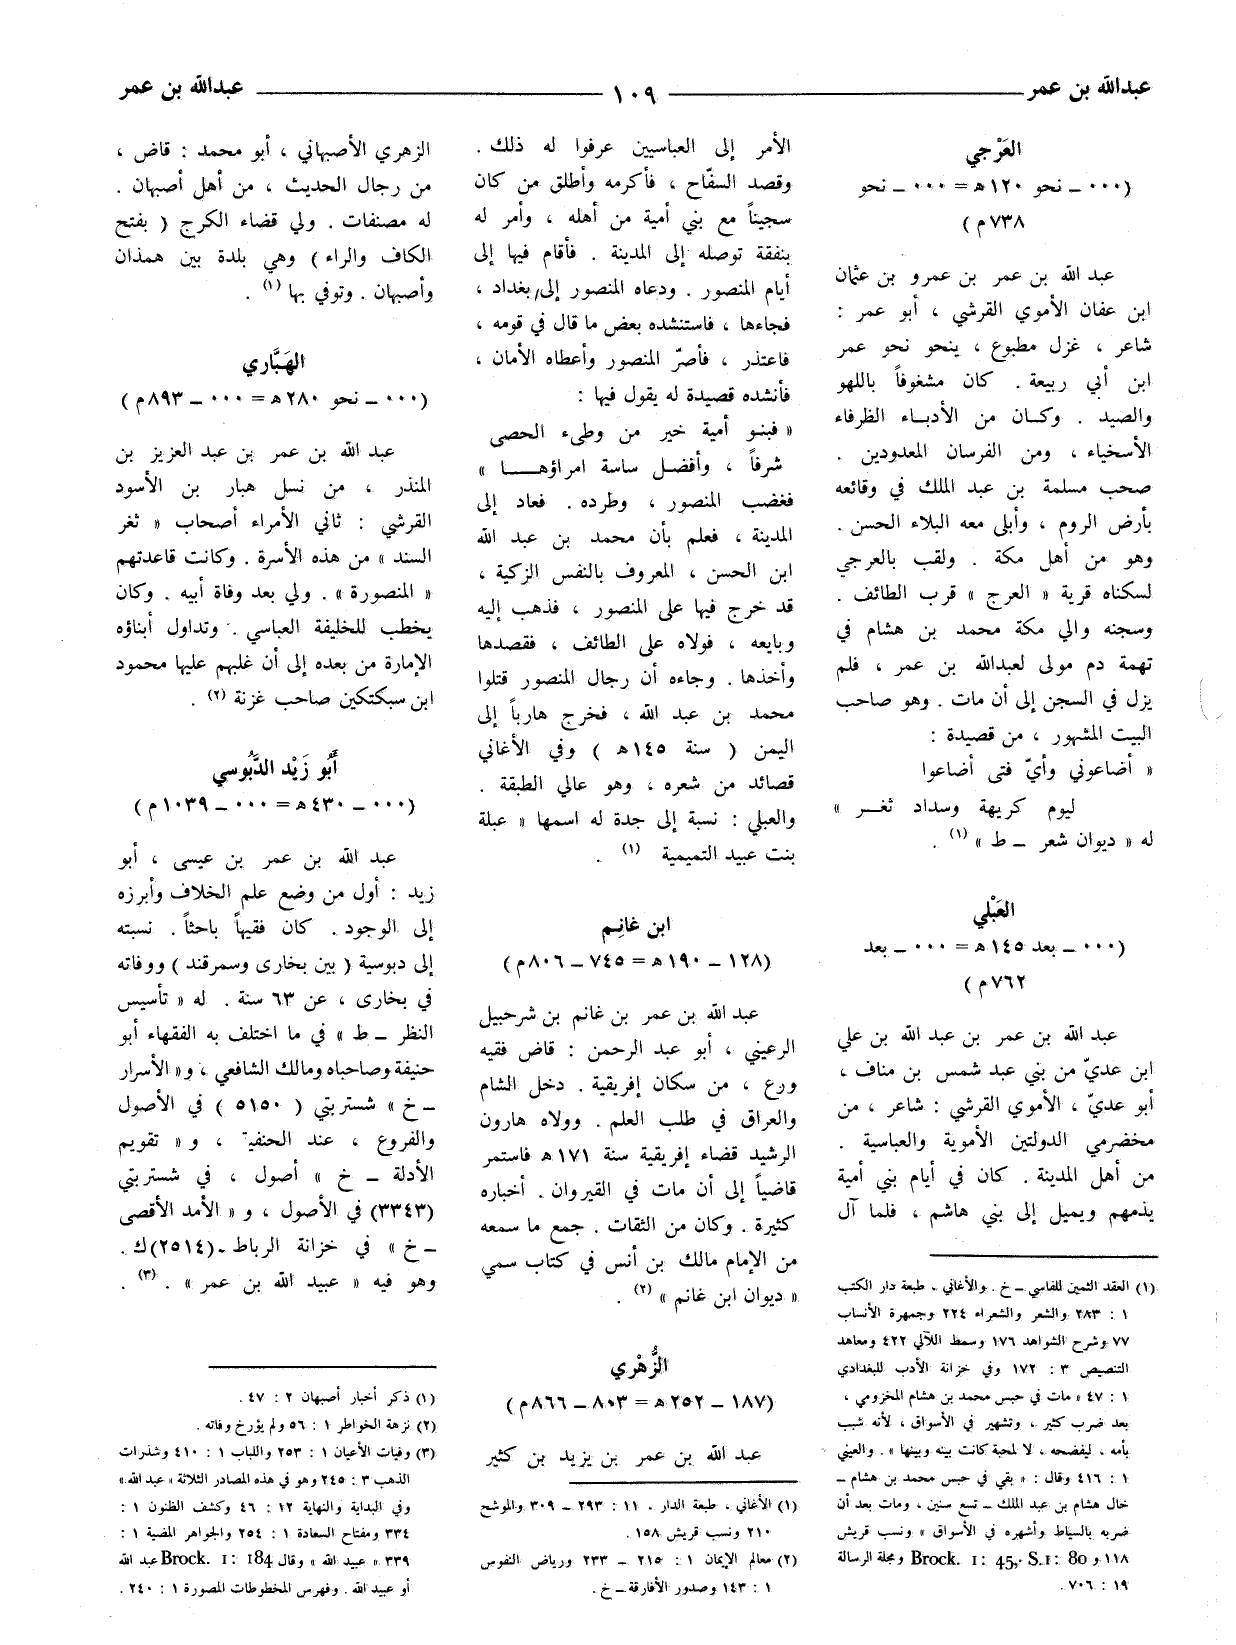 عبدالله بن عمر
١٠٩
عبدالله بن عمر
العَرْجي
(٠٠٠ ــ نحو ١٢٠ ﻫ = ٠٠٠ ــ نحو
٧٣٨ م)
عبد الله بن عمر بن عمرو بن عثمان
ابن عفان الأموي القرشي ، أبو عمر :
شاعر ، غزل مطبوع ، ينحو نحو عمر
ابن أبي ربيعة . كان مشغوفاً باللهو
والصيد . وكــان من الأدبــاء الظرفاء
الأسخياء ، ومن الفرسان المعدودين .
صحب مسلمة بن عبد الملك في وقائعه
بأرض الروم ، وأبلى معه البلاء الحسن .
وهو من أهل مكة . ولقب بالعرجي
لسكناه قرية « العرج » قرب الطائف .
وسجنه والي مكة محمد بن هشام في
تهمة دم مولى لعبدالله بن عمر ، فلم
يزل في السجن إلى أن مات . وهو صاحب
البيت المشهور ، من قصيدة :
« أضاعوني وأيّ فتى أضاعوا
ليوم كريهة وسداد ثغــر »
له « ديوان شعر ــ ط » (١) .
العَبْلي
(٠٠٠ ــ بعد ١٤٥ ﻫ = ٠٠٠ ــ بعد
٧٦٢ م)
عبد الله بن عمر بن عبد الله بن علي
ابن عديّ من بني عبد شمس بن مناف ،
أبو عديّ ، الأموي القرشي : شاعر ، من
مخضرمي الدولتين الأموية والعباسية .
من أهل المدينة . كان في أيام بني أمية
يذمهم ويميل إلى بني هاشم ، فلما آل
(١) العقد الثمين للفاسي ــ خ . والأغاني ، طبعة دار الكتب
١ : ٣٨٣ والشعر والشعراء ٢٢٤ وجمهرة الأنساب
٧٧ وشرح الشواهد ١٧٦ وسمط اللآلي ٤٢٢ ومعاهد
التنصيص ٣ : ١٧٢ وفي خزانة الأدب للبغدادي
١ : ٤٧ « مات في حبس محمد بن هشام المخزومي ،
بعد ضرب كثير ، وتشهير في الأسواق ، لأنه شبب
بأمه ، ليفضحه ، لا لمحبة كانت بينه وبينها » . والعيني
١ : ٤١٦ وقال : « بقي في حبس محمد بن هشام ــ
خال هشام بن عبد الملك ــ تسع سنين ، ومات بعد أن
ضربه بالسياط وأشهره في الأسواق » ونسب قريش
١١٨ و Brock. I: 45, S.I: 80 ومجلة الرسالة
١٩ : ٧٠٦ .
الأمر إلى العباسيين عرفوا له ذلك .
وقصد السفّاح ، فأكرمه وأطلق من كان
سجيناً مع بني أمية من أهله ، وأمر له
بنفقة توصله إلى المدينة . فأقام فيها إلى
أيام المنصور . ودعاه المنصور إلى بغداد ،
فجاءها ، فاستنشده بعض ما قال في قومه ،
فاعتذر ، فأصرّ المنصور وأعطاه الأمان ،
فأنشده قصيدة له يقول فيها :
« فبنو أمية خير من وطىء الحصى
شرفاً ، وأفضل ساسة امراؤهــا »
فغضب المنصور ، وطرده . فعاد إلى
المدينة ، فعلم بأن محمد بن عبد الله
ابن الحسن ، المعروف بالنفس الزكية ،
قد خرج فيها على المنصور ، فذهب إليه
وبايعه ، فولاه على الطائف ، فقصدها
وأخذها . وجاءه أن رجال المنصور قتلوا
محمد بن عبد الله ، فخرج هارباً إلى
اليمن ( سنة ١٤٥ ﻫ ) وفي الأغاني
قصائد من شعره ، وهو عالي الطبقة .
والعبلي : نسبة إلى جدة له اسمها « عبلة
بنت عبيد التميمية (١) .
ابن غانِم
(١٢٨ ــ ١٩٠ ﻫ = ٧٤٥ ــ ٨٠٦ م)
عبد الله بن عمر بن غانم بن شرحبيل
الرعيني ، أبو عبد الرحمن : قاض فقيه
ورع ، من سكان إفريقية . دخل الشام
والعراق في طلب العلم . وولاه هارون
الرشيد قضاء إفريقية سنة ١٧١ ﻫ فاستمر
قاضياً إلى أن مات في القيروان . أخباره
كثيرة . وكان من الثقات . جمع ما سمعه
من الإمام مالك بن أنس في كتاب سمي
« ديوان ابن غانم » (٢) .
الزُّهْري
(١٨٧ ــ ٢٥٢ ﻫ = ٨٠٣ ــ ٨٦٦ م)
عبد الله بن عمر بن يزيد بن كثير
(١) الأغاني ، طبعة الدار . ١١ : ٢٩٣ ــ ٣٠٩ والموشح
٢١٠ ونسب قريش ١٥٨ .
(٢) معالم الإيمان ١ : ٢١٥ ــ ٢٣٣ ورياض النفوس
١ : ١٤٣ وصدور الأفارقة ــ خ .
الزهري الأصبهاني ، أبو محمد : قاض ،
من رجال الحديث ، من أهل أصبهان .
له مصنفات . ولي قضاء الكرج ( بفتح
الكاف والراء ) وهي بلدة بين همذان
وأصبهان . وتوفي بها (١) .
الهَبَّاري
(٠٠٠ ــ نحو ٢٨٠ ﻫ = ٠٠٠ ــ ٨٩٣ م)
عبد الله بن عمر بن عبد العزيز بن
المنذر ، من نسل هبار بن الأسود
القرشي : ثاني الأمراء أصحاب « ثغر
السند » من هذه الأسرة . وكانت قاعدتهم
« المنصورة » . ولي بعد وفاة أبيه . وكان
يخطب للخليفة العباسي . وتداول أبناؤه
الإمارة من بعده إلى أن غلبهم عليها محمود
ابن سبكتكين صاحب غزنة (٢) .
أَبُو زَيْد الدَّبُوسي
(٠٠٠ ــ ٤٣٠ ﻫ = ٠٠٠ ــ ١٠٣٩ م)
عبد الله بن عمر بن عيسى ، أبو
زيد : أول من وضع علم الخلاف وأبرزه
إلى الوجود . كان فقيهاً باحثاً . نسبته
إلى دبوسية ( بين بخارى وسمرقند ) ووفاته
في بخارى ، عن ٦٣ سنة . له « تأسيس
النظر ــ ط » في ما اختلف به الفقهاء أبو
حنيفة وصاحباه ومالك الشافعي ، و« الأسرار
ــ خ » شستربتي ( ٥١٥٠ ) في الأصول
والفروع ، عند الحنفية ، و « تقويم
الأدلة ــ خ » أصول ، في شستربتي
(٣٣٤٣) في الأصول ، و « الأمد الأقصى
ــ خ » في خزانة الرباط ــ (٢٥١٤)ك .
وهو فيه « عبيد الله بن عمر » . (٣) .
(١) ذكر أخبار أصبهان ٢ : ٤٧ .
(٢) نزهة الخواطر ١ : ٥٦ ولم يؤرخ وفاته .
(٣) وفيات الأعيان ١ : ٢٥٣ واللباب ١ : ٤١٠ وشذرات
الذهب ٣ : ٢٤٥ وهو في هذه المصادر الثلاثة « عبد الله »
وفي البداية والنهاية ١٢ : ٤٦ وكشف الظنون ١ :
٣٣٤ ومفتاح السعادة ١ : ٢٥٤ والجواهر المضية ١ :
٣٣٩ « عبيد الله » وقال Brock. I: 184 عبد الله
أو عبيد الله . وفهرس المخطوطات المصورة ١ : ٢٤٠ .